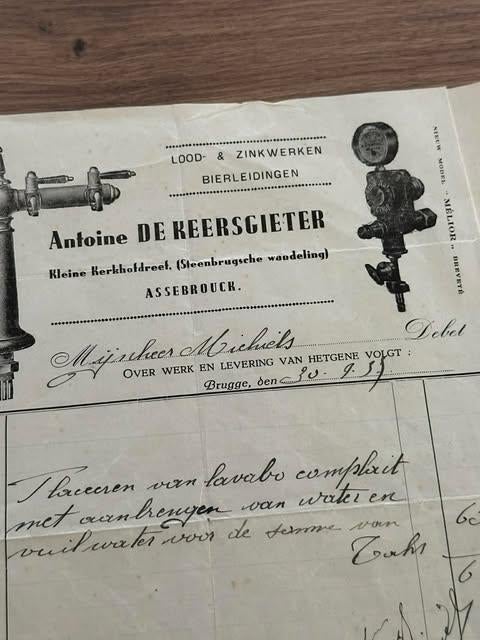 LOOD- & ZINKWERKEN
BIERLEIDINGEN
Antoine DE KEERSGIETER
Kleine Kerkhofdreef, (Steenbrugsche wandeling)
ASSEBROUCK.
NIEUW MODEL „ MÉLIOR „ BREVETÉ
Mijnheer Michiels Debet
OVER WERK EN LEVERING VAN HETGENE VOLGT :
Brugge, den 30-9-39
Placeeren van lavabo complait
met aanbrengen van water en
vuil water voor de somme van
6